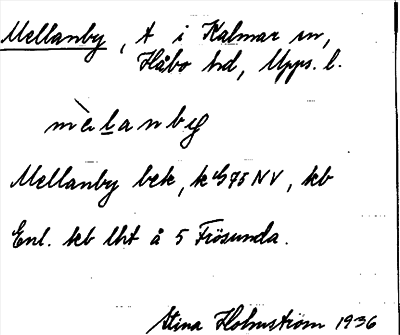 Mellanby, t i Kalmar sn,
Håbo hd, Upps. l.
mèlanby
Mellanby bek, k 1/2 75 NV, kb
Enl. kb lht å 5 Frösunda.
Stina Holmström 1936